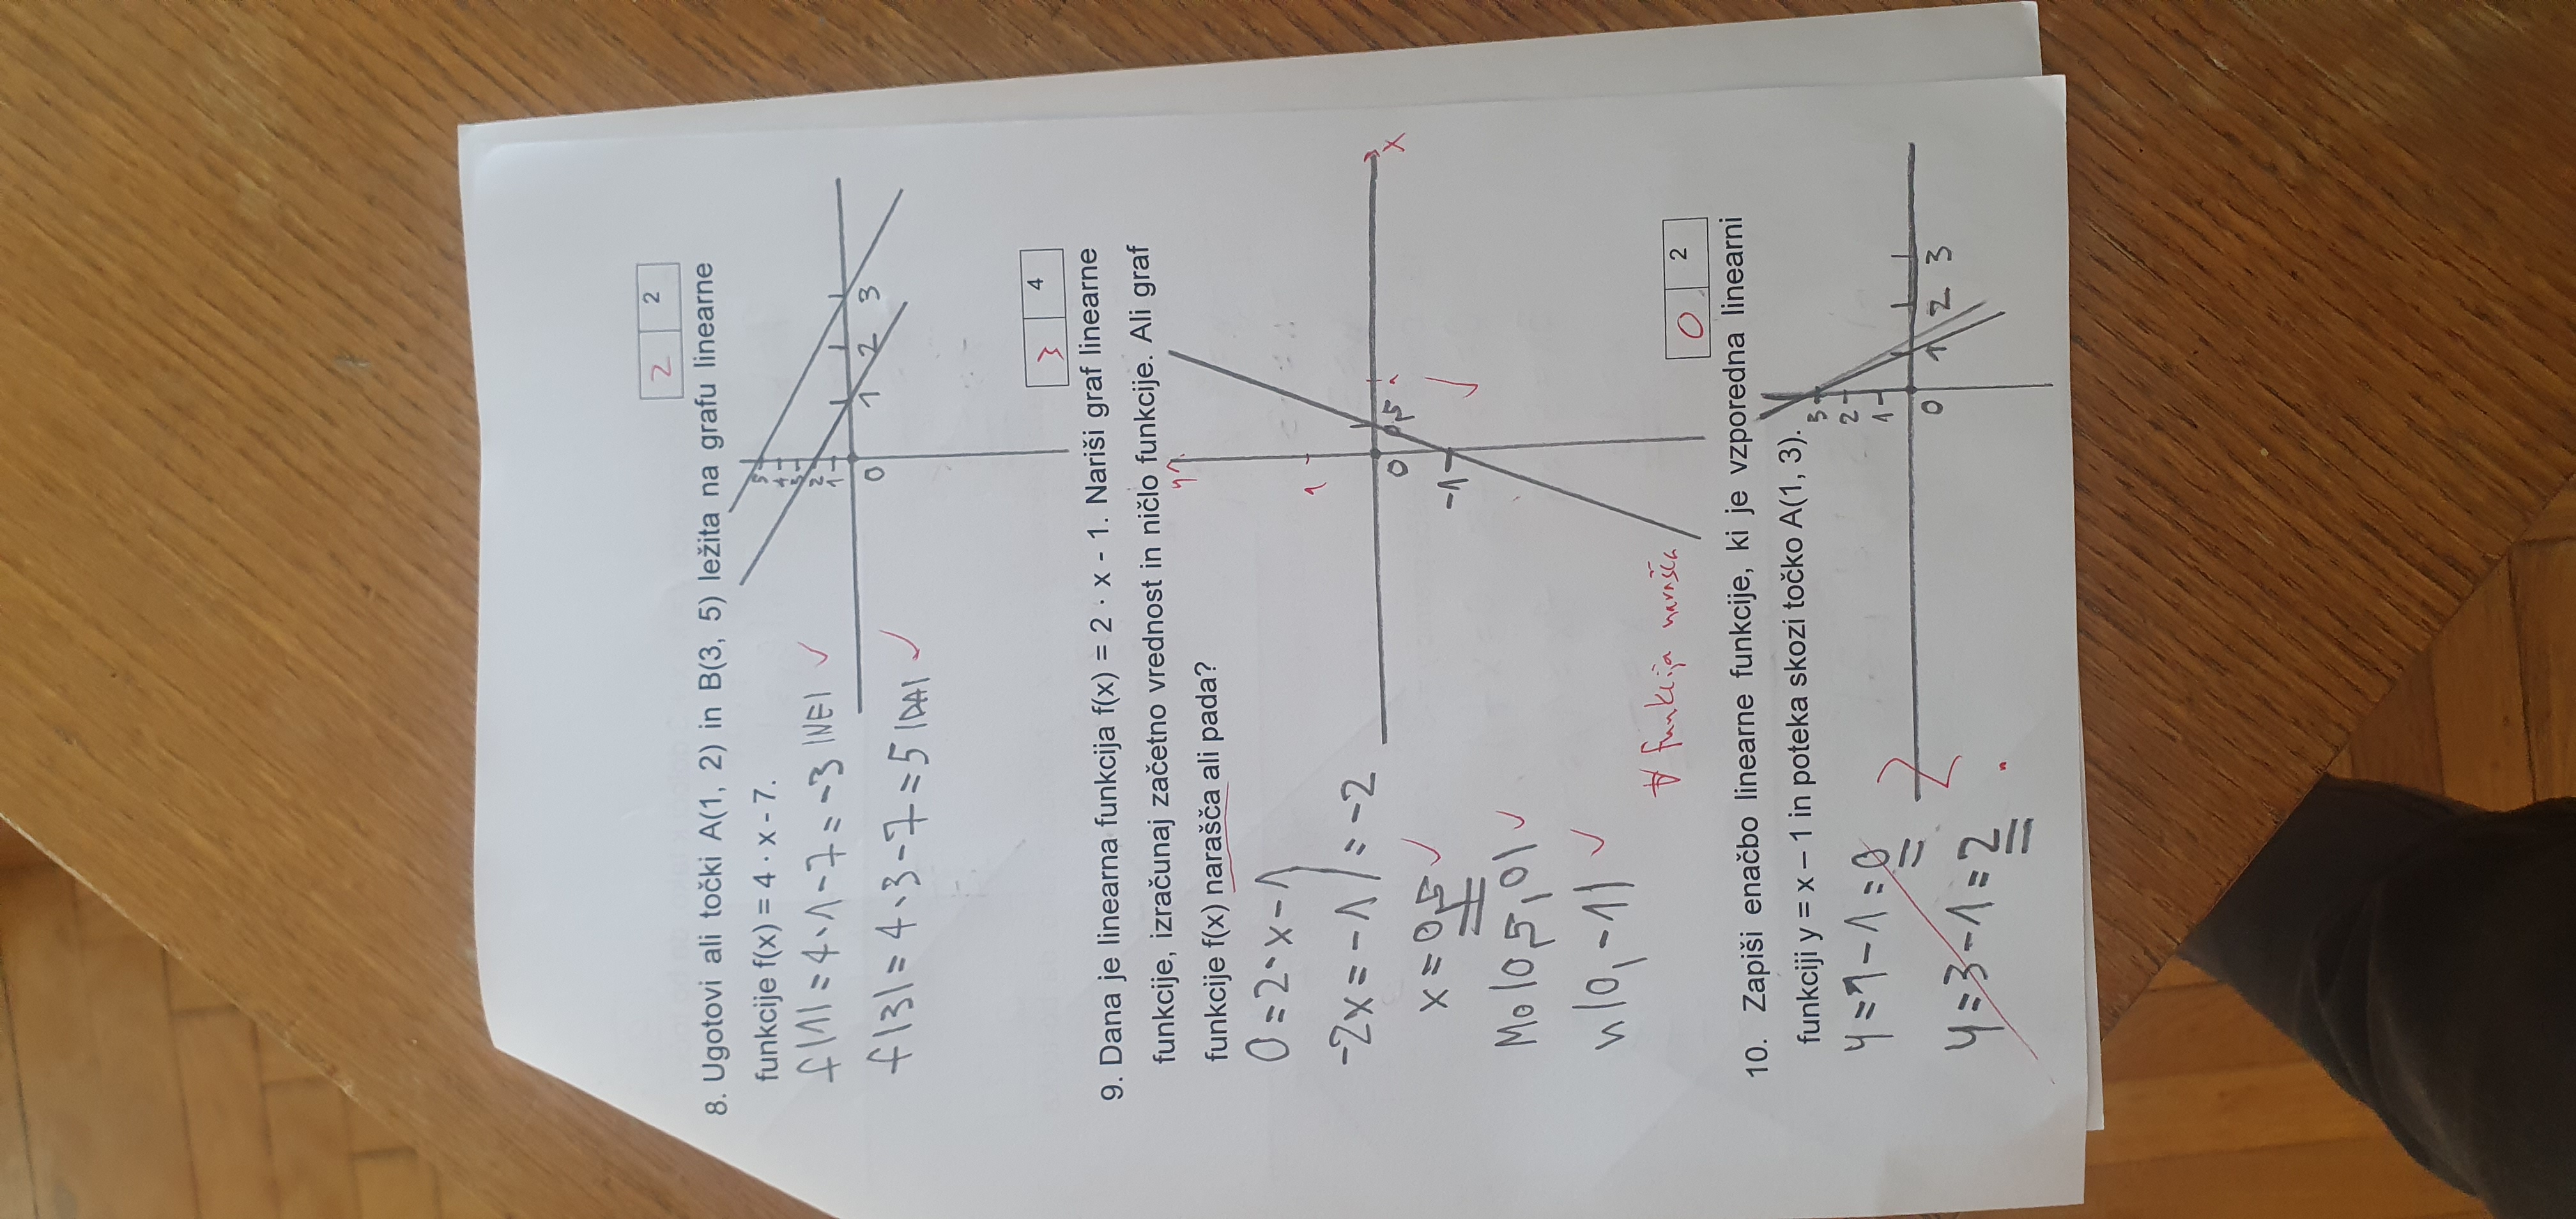 2 2
8. Ugotovi ali točki A(1, 2) in B(3, 5) ležita na grafu linearne
funkcije f(x) = 4 · x - 7.
f(1) = 4·1-7 = -3 (NE) ✓
f(3) = 4·3-7 = 5 (DA) ✓
5
4
3
2
1
0 1 2 3
3 4
9. Dana je linearna funkcija f(x) = 2 · x - 1. Nariši graf linearne
funkcije, izračunaj začetno vrednost in ničlo funkcije. Ali graf
funkcije f(x) narašča ali pada?
0 = 2·x-1
-2x = -1 / : -2
x = 0,5 ✓
Mo(0,5, 0) ✓
n(0, -1) ✓
y
1
0 0,5 1 x
-1
✓
∀ funkcija narašča
0 2
10. Zapiši enačbo linearne funkcije, ki je vzporedna linearni
funkciji y = x – 1 in poteka skozi točko A(1, 3).
y = 1-1 = 0
y = 3-1 = 2
?
3
2
1
0 1 2 3